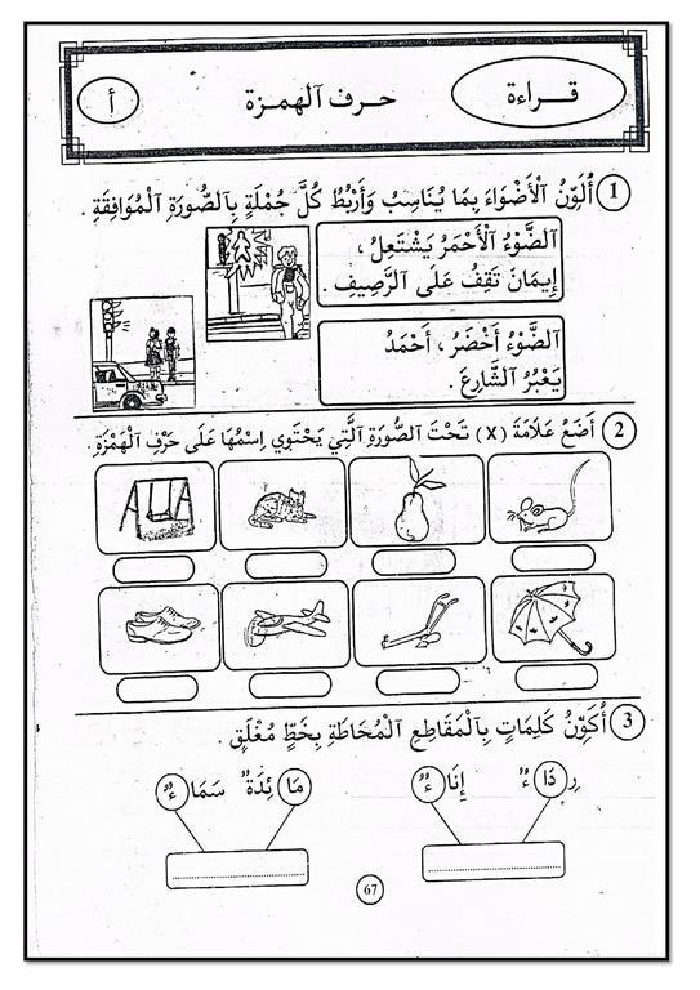 قـــراءة
حـرف ٱلهمـزة
أ
1 أُلَوِّنُ ٱلْأَضْوَاءَ بِمَا يُنَاسِبُ وَأَرْبُطُ كُلَّ جُمْلَةٍ بِٱلصُّورَةِ ٱلْمُوَافِقَةِ .
ٱلضَّوْءُ ٱلْأَحْمَرُ يَشْتَعِلُ ،
إِيمَانَ تَقِفُ عَلَى ٱلرَّصِيفِ .
ٱلضَّوْءُ أَخْضَرُ ، أَحْمَدُ
يَعْبُرُ ٱلشَّارِعَ .
2 أَضَعُ عَلَامَةَ (X) تَحْتَ ٱلصُّورَةِ ٱلَّتِي يَحْتَوِي اِسْمُهَا عَلَى حَرْفِ ٱلْهَمْزَةِ .
3 أُكَوِّنُ كَلِمَاتٍ بِٱلْمَقَاطِعِ ٱلْمُحَاطَةِ بِخَطٍّ مُغْلَقٍ .
رِدَاءٌ إِنَاءٌ مَائِدَةٌ سَمَاءٌ
67